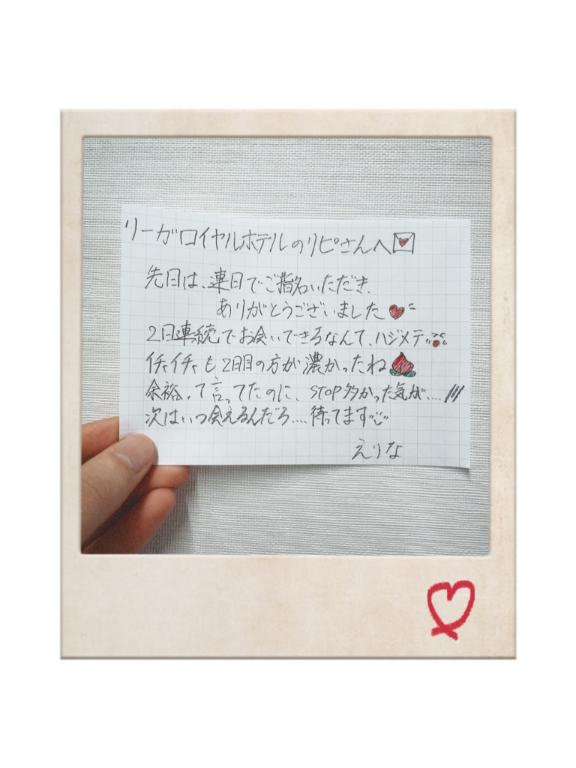 リーガロイヤルホテルのリピさんへ💌
先日は、連日でご指名いただき、
ありがとうございました❤
2日連続でお会いできるなんて、ハジメテ
イチャイチャも2日目の方が濃かったね
余裕って言ってたのに、STOP多かった気が....///
次はいつ会えるんだろ....待ってます
えりな